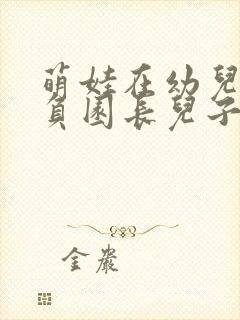 萌娃在幼兒
負園長兒子
金嚴